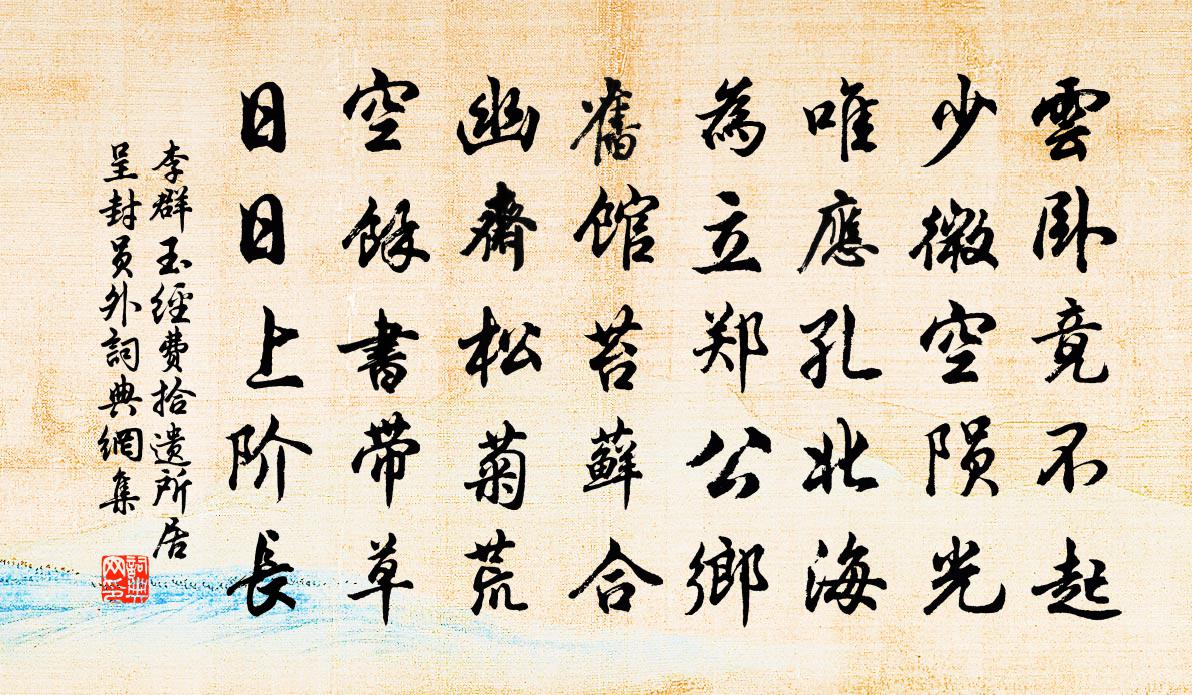 雲卧竟不起
少微空陨光
唯應孔北海
為立郑公鄉
舊馆苔蘚合
幽齋松菊荒
空餘書带草
日日上阶長
李群玉經費拾遗所居
呈封员外詞典網集